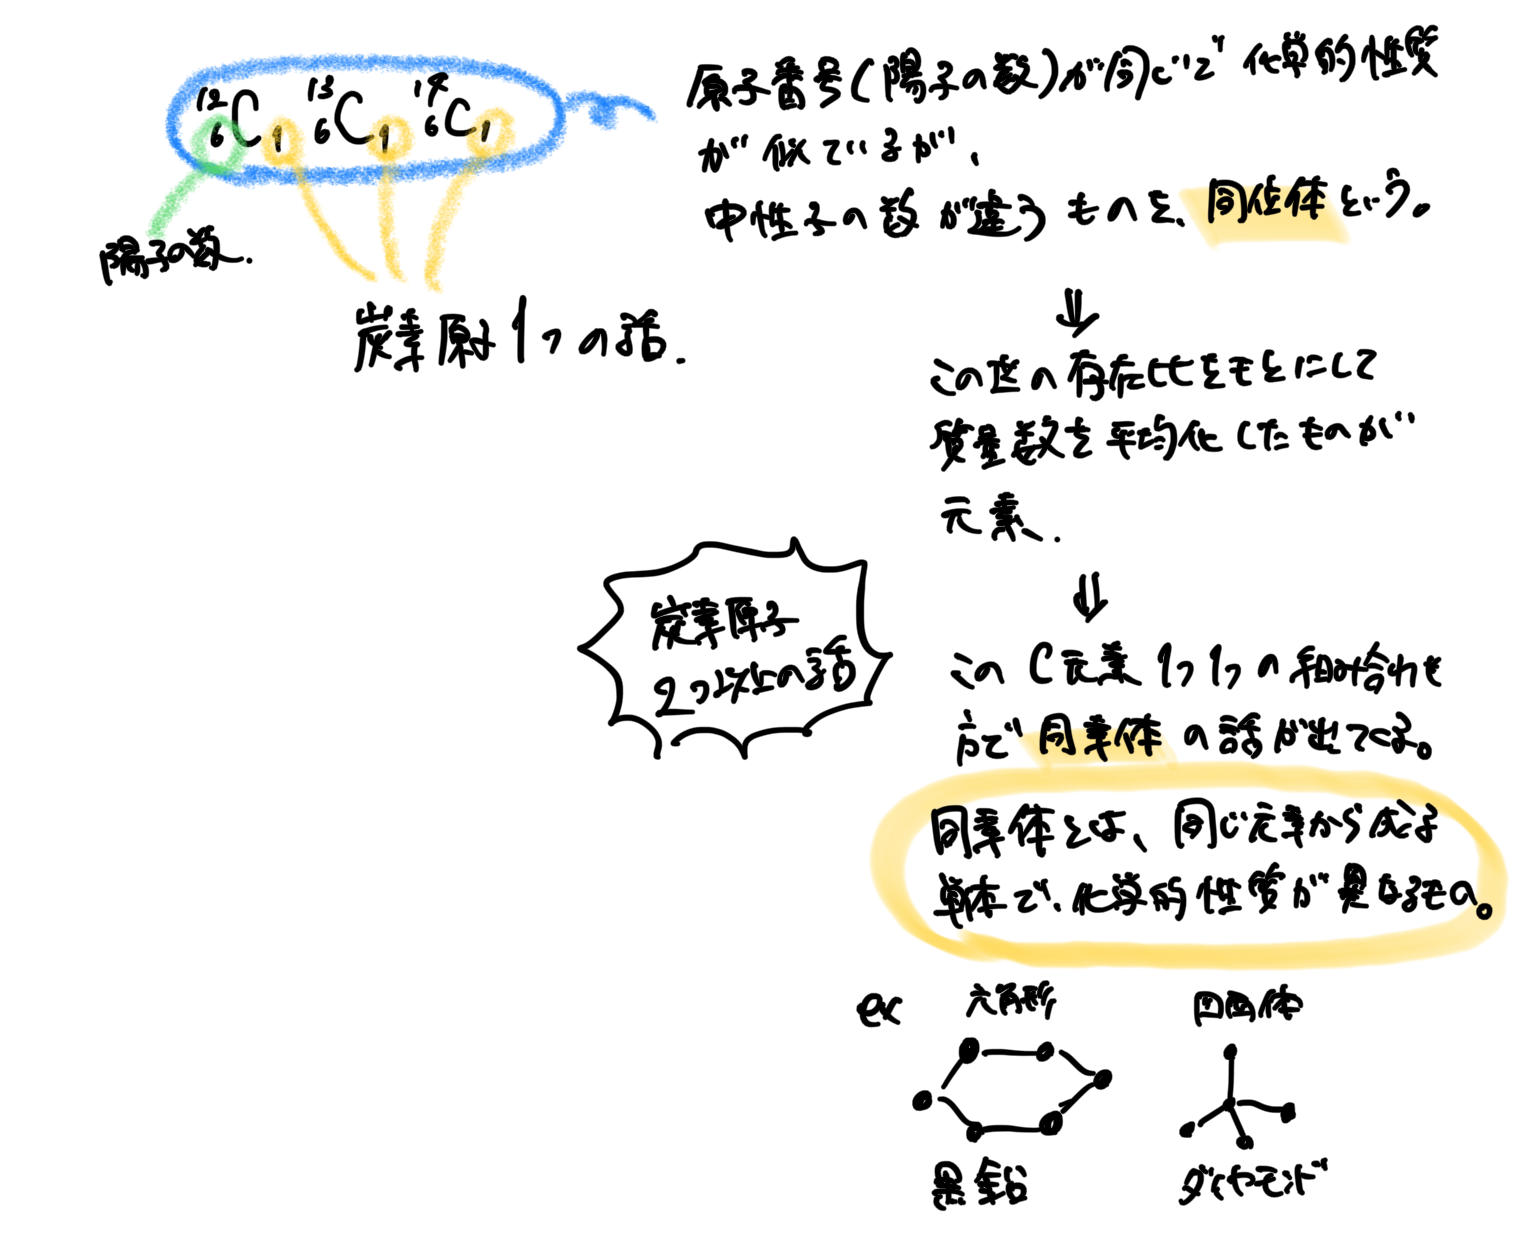 12 6 C 1 13 6 C 1 14 6 C 1
陽子の数.
炭素原子1つの話.
原子番号(陽子の数)が同じで化学的性質
が似ているが、
中性子の数が違うものを、同位体という。
⇓
この世の存在比をもとにして
質量数を平均化したものが
元素.
⇓
炭素原子
2つ以上の話
このC元素1つ1つの組み合わせ
方で同素体の話が出てくる。
同素体とは、同じ元素から成る
単体で、化学的性質が異なるもの。
ex 六角形 四面体
黒鉛 ダイヤモンド